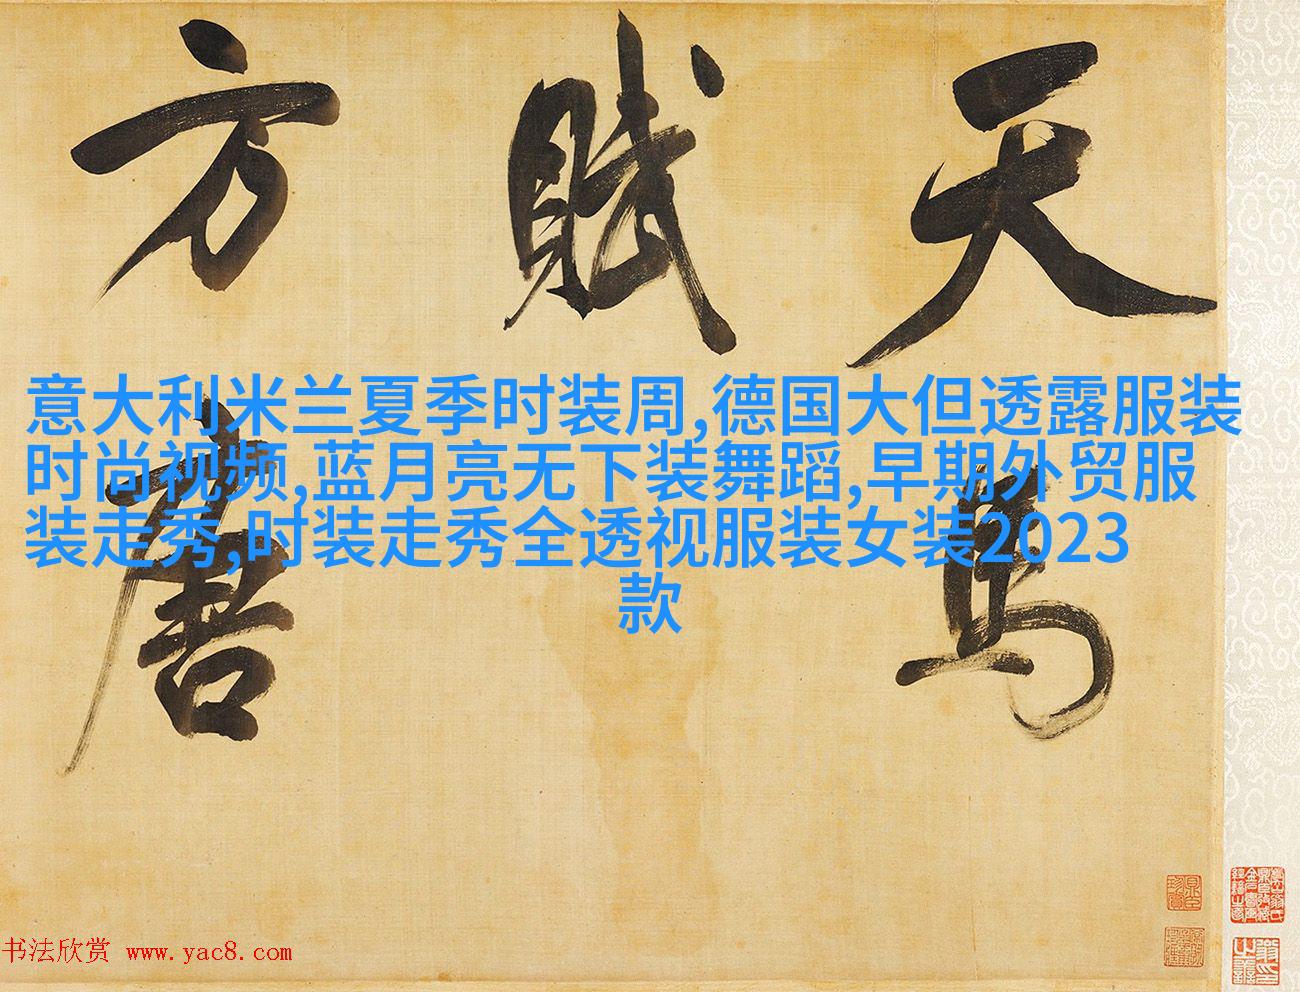 天馬
賦
方唐
意大利米兰夏季时装周,德国大但透露服装
时尚视频,蓝月亮无下装舞蹈,早期外贸服
装走秀,时装走秀全透视服装女装2023
款
书法欣赏 www.yac8.com